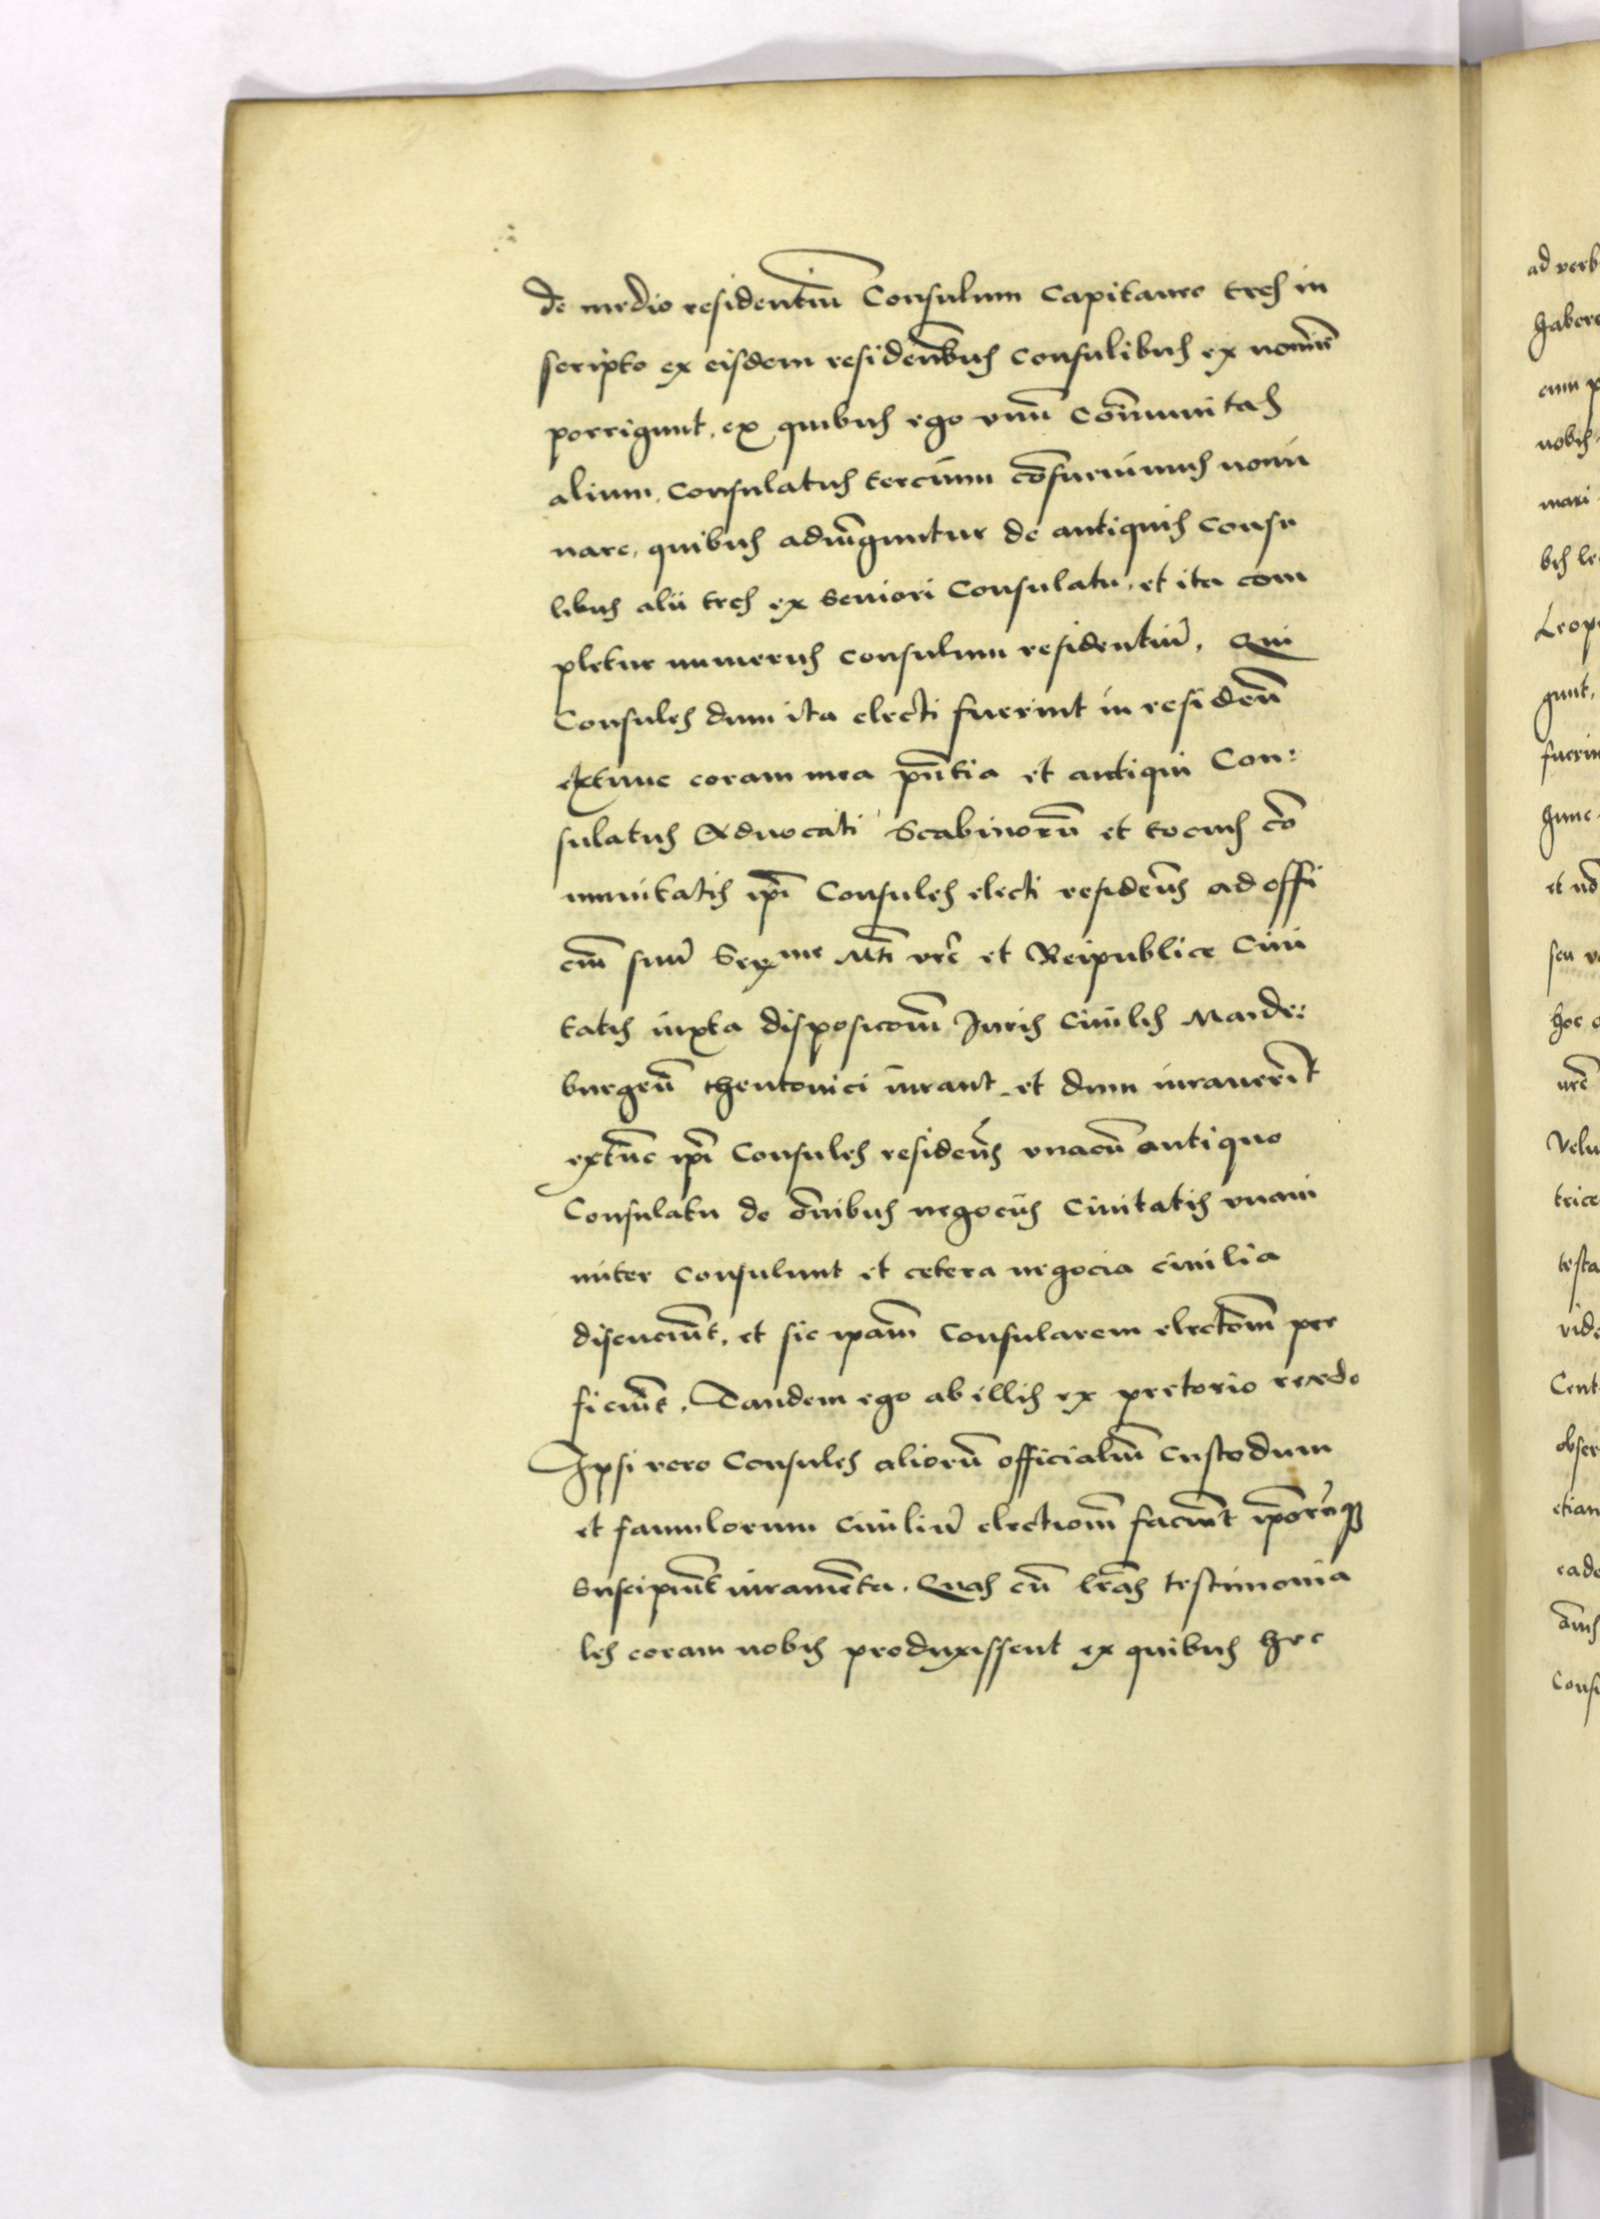 de medio residentiũ Consulum Capitaneo tres in
scripto ex eisdem residentib̃us consulibus ex noĩne
porrigunt, ex quibus ego vnũ Cõmunitas
alium, Consulatus tercium cõsueuimus nomi
nare, quibus adiũguntur de antiquis consu
libus alii tres ex seniori Consulatu, et ita com
pletur numerus consulum residentiũ, Qui
Consules dum ita electi fuerint in residen̄
extunc coram mea pñtia et antiqui Con:
sulatus Aduocati Scabinorũ et tocius cõ
munitatis ip̃i Consules electi residen̄s ad offi
ciũ suũ Ser me Mti vr̃e et Reipublice Ciui
tatis iuxta disposicom̃ Juris Ciuilis Maide:
burgen̄ thentonici iurant et dum iurauerĩt
extũc ip̃i Consules residen̄s vnacũ antiquo
Consulatu de om̃ibus negociis Ciuitatis vnani
miter consulunt et cetera negocia ciuilia
discuciũt, et sic ip̃am Consularem electom̃ per
ficiũt, Tandem ego ab illis ex pretorio recedo
Ipsi vero Consules aliorũ officialiũ Custodum
et famulorum Ciuiliũ electiom̃ faciũt ip̃orũq3
suscipiũt iuramẽta. Quas cũ l̃ras testimonia
les coram nobis produxissent ex quibus hec
ad verb
habere
cum p
nobis
mari
bis le
Leop
gunt,
fuerin
hunc
et nõ
seu v
hoc
vr̃e
Velu
trice
testa
vide
Cent
obser
etian
eade
Consu